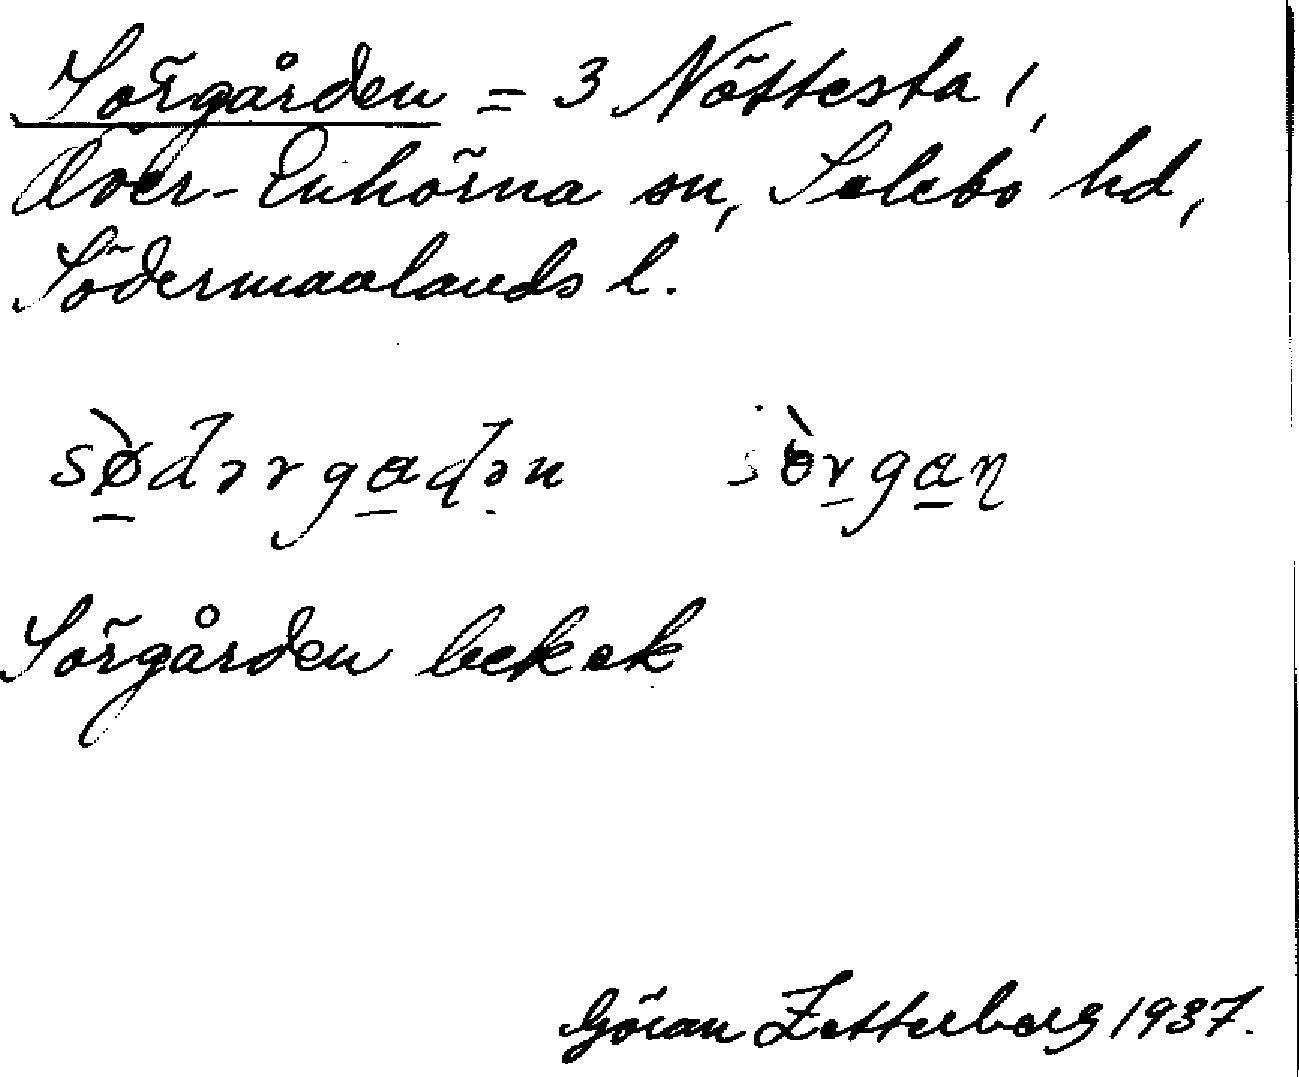 Sörgården = 3 Nöttesta 1,
Över-Enhörna sn, Selebo hd,
Södermanlands l.
sø̀dərgadən sòrgaɳ
Sörgården bek ek
Göran Zetterberg 1937.